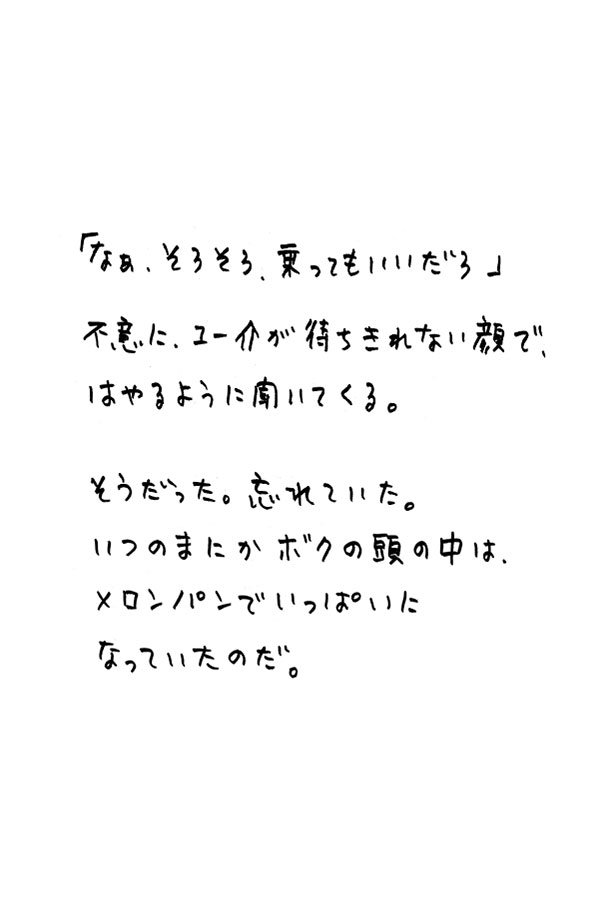 「なぁ、そろそろ、乗ってもいいだろ」
不意に、ユー介が待ちきれない顔で、
はやるように聞いてくる。
そうだった。忘れていた。
いつのまにかボクの頭の中は、
メロンパンでいっぱいに
なっていたのだ。